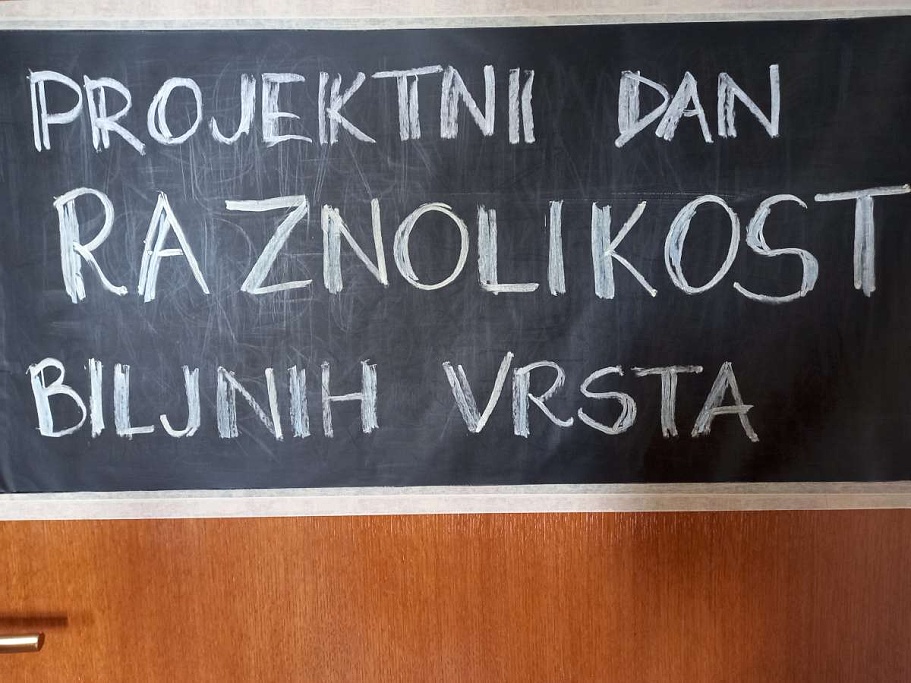 PROJEKTNI DAN
RAZNOLIKOST
BILJNIH VRSTA